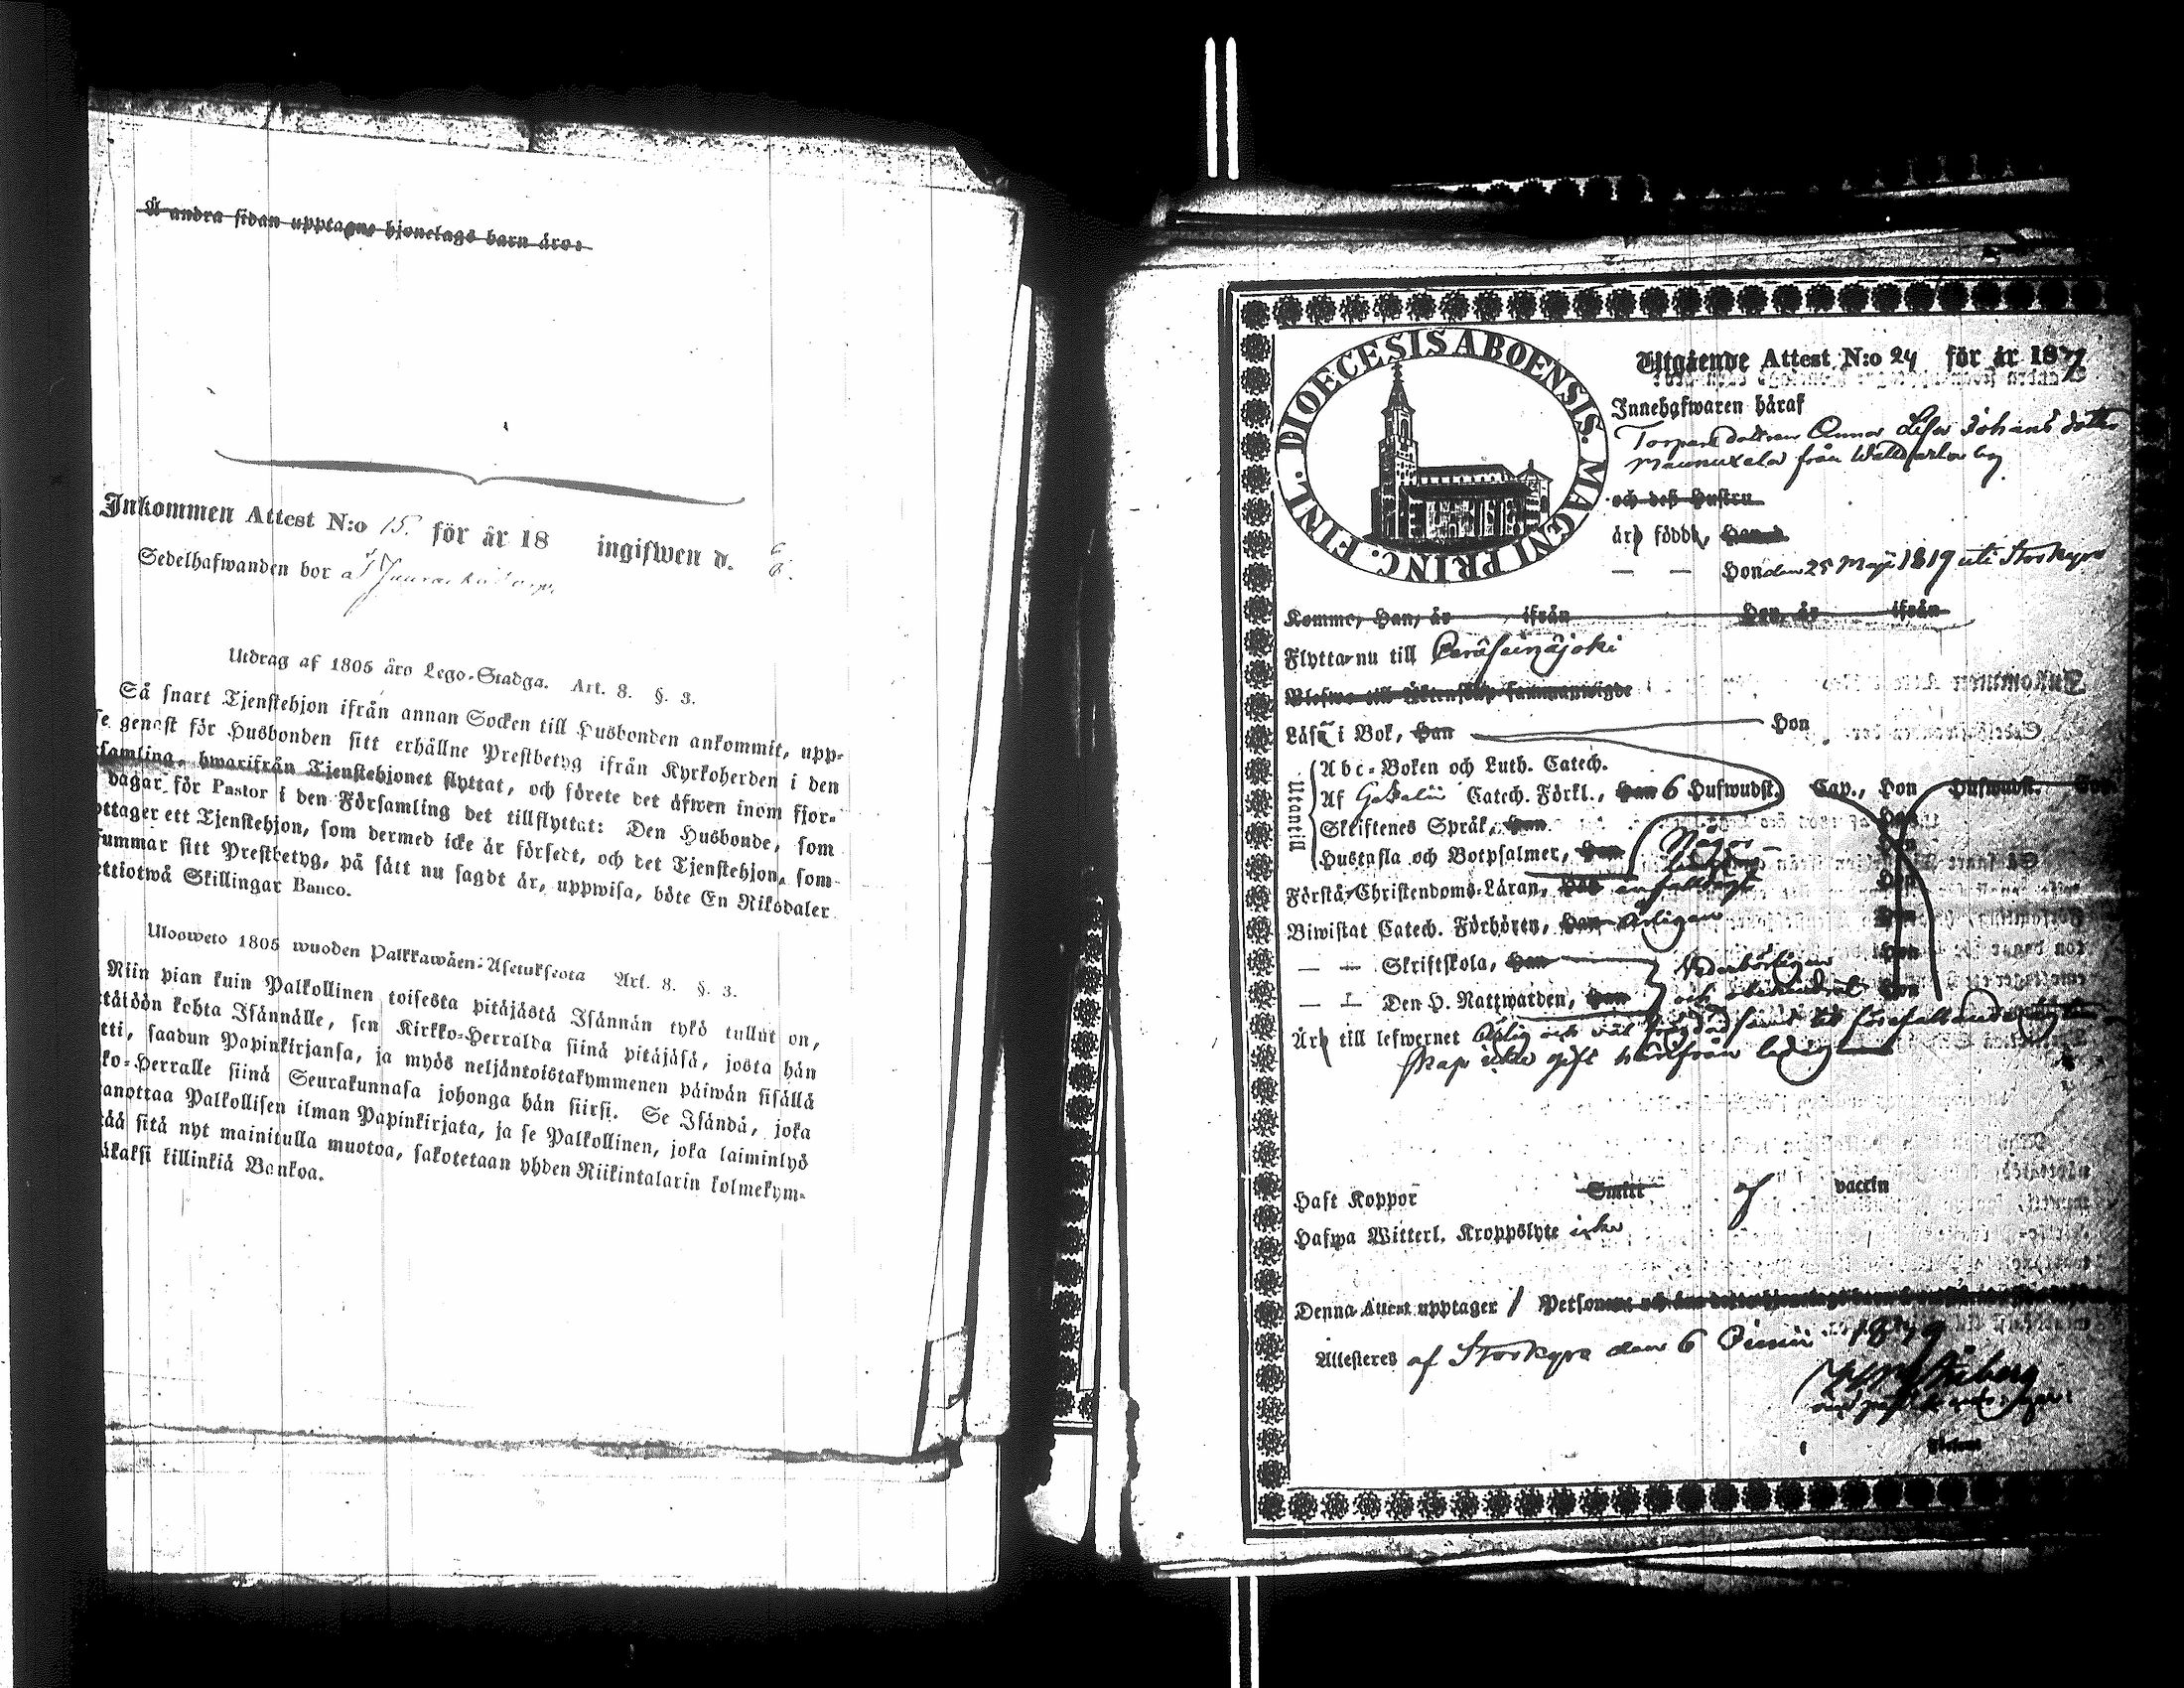 Å andra sidan upptagne hjonelags barn äro:
Inkommen Attest N:o 15. för år 18 ingifwen d.
Sedelhafwanden bor
Utdrag af 1805 års Lego-Stadga. Art. 8. §. 3.
Så snart Tjenstehjon ifrån annan Socken till Husbonden ankommit, upp-
se genast för Husbonden sitt erhållne Prestbetyg ifrån Kyrkoherden i den
samling, hwarifrån Tjenstehjonet flyttat, och förete det äfwen inom fjor-
dagar för Pastor i den Församling det tillflyttat: Den Husbonde, som
ottager ett Tjenstehjon, som dermed icke är försedt, och det Tjenstehjon, som
summar sitt Prestbetyg, på sätt nu sagdt är, uppwisa, böte En Riksdaler
ettiotwå Skillingar Banco.
Ulosweto 1805 wuoden Palkkawäen-Asetuksesta Art. 8. §. 3.
Niin pian kuin Palkollinen toisesta pitäjästä Isännän tykö tullut on,
ttäköön kohta Isännälle, sen Kirkko-Herralda siinä pitäjäsä, josta hän
tti, saadun Papinkirjansa, ja myös neljäntoistakymmenen päiwän sisällä
ko-Herralle siinä Seurakunnasa johonga hän siirsi. Se Isändä, joka
anottaa Palkollisen ilman Papinkirjata, ja se Palkollinen, joka laiminlyö
tää sitä nyt mainitulla muotoa, sakotetaan yhden Riikintalarin kolmekym-
äkaksi killinkiä Bankoa.
DIOECESIS ABOENSIS. MAGNI PRINC. FINL.
Utgående Attest N:o 24 för år 187
Innehafwaren häraf
Torpare dottren Anna Lisa Johans dotter
från by
och dess Hustru
äro födde, Han d.
— — Hon den 25 Maji 1819 uti Storkyro
Komme, Han, år ifrån Hon, år ifrån
Flytta nu till Peräseinäjoki
Blefwo till Äktenskap sammanwigde
Läsa i Bok, Han Hon
Utantill
Abc-Boken och Luth. Catech.
Af Catech. Förkl., Han 6 Hufwudst. Cap., Hon Hufwudst. Cap.
Skriftenes Språk, Han Hon
Hustafla och Botpsalmer, Han Hon
Förstå Christendoms-Läran, Han Hon
Biwistat Catech. Förhören, Han årligen Hon
— — Skriftskola, Han Hon
— — Den H. Nattwarden, Han och Hon
Äro till lefwernet ärlig och till
skap icke gift härifrån ledig
Haft Koppor Smitt af vaccin
Hafwa Witterl. Kroppslyte icke
Denna Attest upptager 1 Personer
Attesteres af Storkyro den 6 Junii 1879